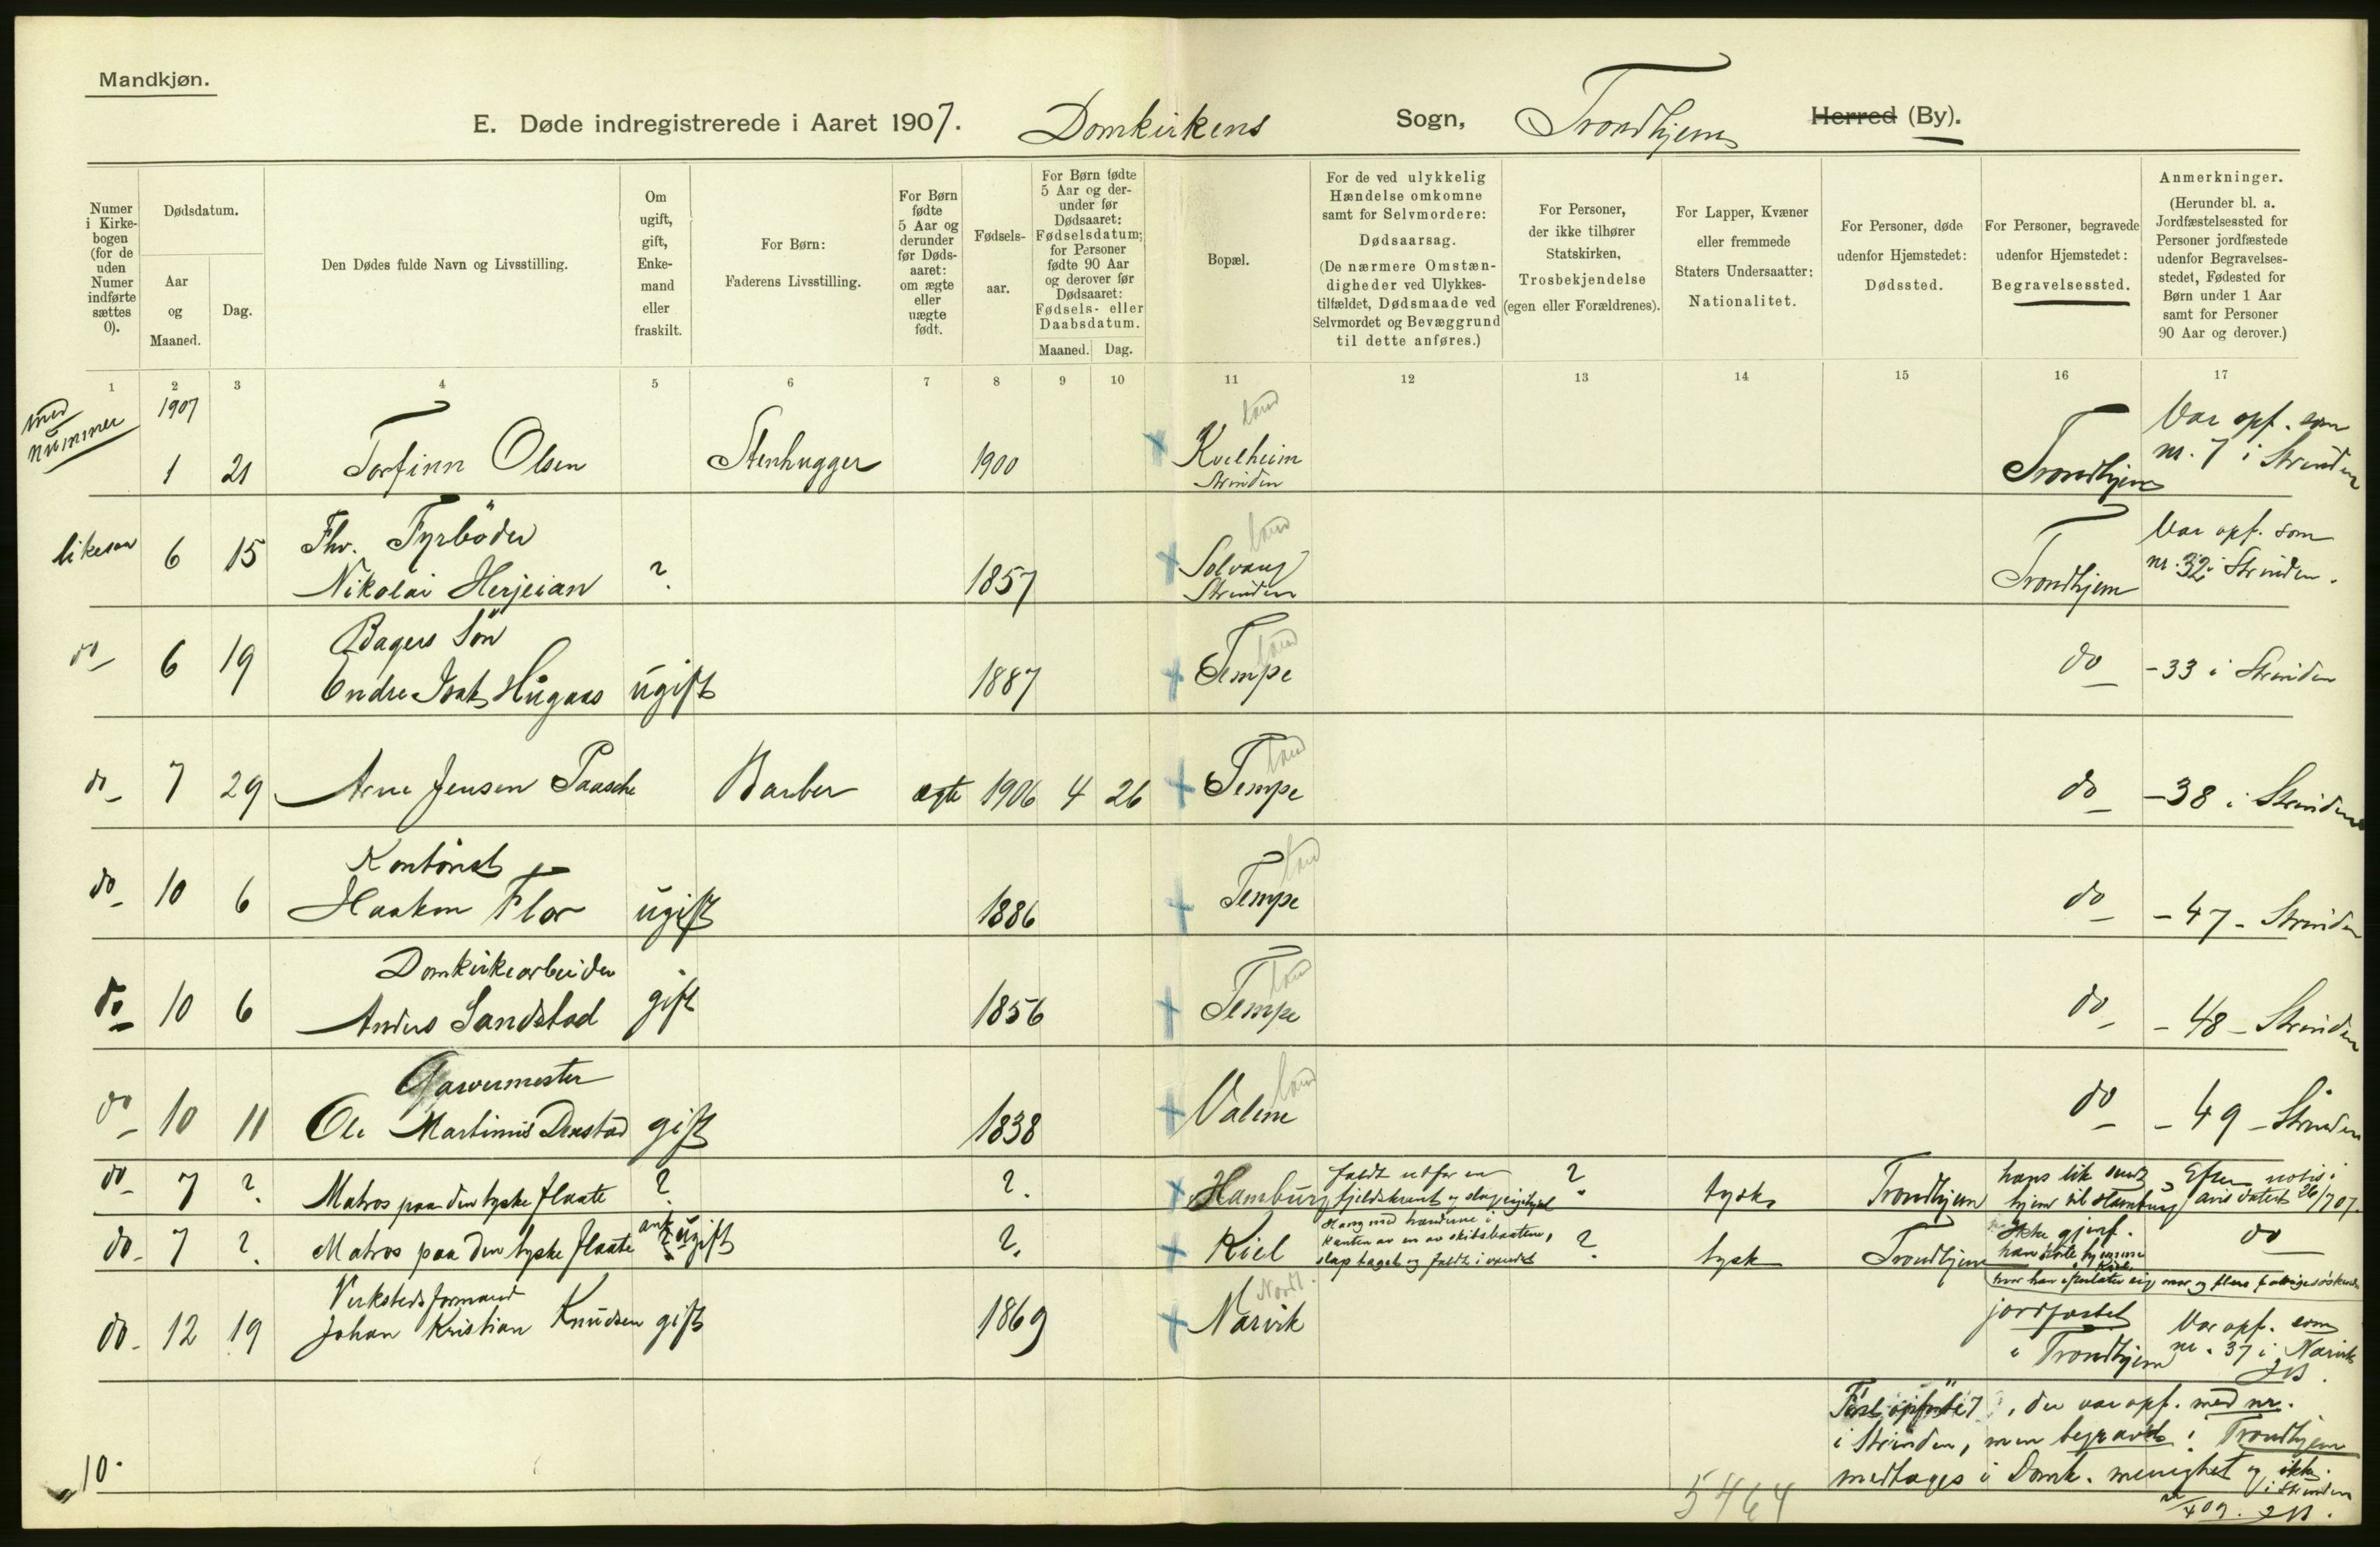 Mandkjøn.
E. Døde indregistrerede i Aaret 1907. Domkirkens Sogn, Trondhjem Herred (By).
Numer i Kirkebogen (for de uden Numer indførte sættes 0).
Dødsdatum.
Aar og Maaned.
Dag.
Den Dødes fulde Navn og Livsstilling.
Om ugift, gift, Enkemand eller fraskilt.
For Børn: Faderens Livsstilling.
For Børn fødte 5 Aar og derunder før Dødsaaret: om ægte eller uægte født.
Fødselsaar.
For Børn fødte 5 Aar og derunder før Dødsaaret: Fødselsdatum; for Personer fødte 90 Aar og derover før Dødsaaret: Fødsels- eller Daabsdatum.
Maaned. Dag.
Bopæl.
For de ved ulykkelig Hændelse omkomne samt for Selvmordere: Dødsaarsag. (De nærmere Omstændigheder ved Ulykkestilfældet, Dødsmaade ved Selvmordet og Bevæggrund til dette anføres.)
For Personer, der ikke tilhører Statskirken, Trosbekjendelse (egen eller Forældrenes).
For Lapper, Kvæner eller fremmede Staters Undersaatter: Nationalitet.
For Personer, døde udenfor Hjemstedet: Dødssted.
For Personer, begravede udenfor Hjemstedet: Begravelsessted.
Anmerkninger. (Herunder bl. a. Jordfæstelsessted for Personer jordfæstede udenfor Begravelsesstedet, Fødested for Børn under 1 Aar samt for Personer 90 Aar og derover.)
1 2 3 4 5 6 7 8 9 10 11 12 13 14 15 16 17
med nummer
1907
land
Var opf. som
1 21 Torfinn Olsen Stenhugger 1900 Kvelheim Trondhjem nr. 7 i Strinden
Strinden
Fhv. Fyrbøder land Var opf. som
likesaa 6 15 Nikolai Herjeian ? 1857 Solvang Trondhjem nr. 32 i Strinden.
Strinden
Bagers Søn land
do 6 19 Endre Isak Hugaas ugift 1887 Tempe do - 33 i Strinden
land
do 7 29 Arne Jensen Paasche Barber ægte 1906 4 26 Tempe do - 38 i Strinden
Kontorist land
do 10 6 Haakon Flor ugift 1886 Tempe do - 47 - Strinden
Domkirkearbeider land
do 10 6 Anders Sandstad gift 1856 Tempe do - 48 - Strinden
Garvermester land
do 10 11 Ole Martinus Denstad gift 1838 Valene do - 49 - Strinden
do 7 ? Matros paa den tyske flaate ? ? Hamburg faldt utfor en fjeldskrent og slog ihjel ? tysk Trondhjem hans lik sendt hjem til Hamburg Efter notis i avis datert 26/7 07.
do 7 ? Matros paa den tyske flaate ugift ? Kiel Hang med hænderne i kanten av en av skibsbaatene, slap taget og faldt i vandet ? tysk Trondhjem Ikke gjenf. do
hvor han efterlater sig mor og flere søskende
Verkstedsformand Nordl.
do 12 19 Johan Kristian Knudsen gift 1869 Narvik jordfæstet i Trondhjem Var opf. som nr. 37 i Narvik
, der var opf. med nr.
i Strinden, men begravet i Trondhjem
10. medtages i Domk. menighet og ikke i Strinden
5464